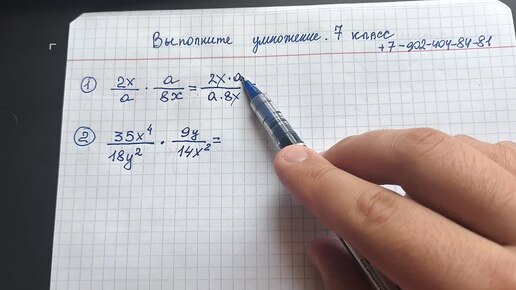 Выполните умножение. 7 класс
+7-902-404-84-81
① 2x/a · a/8x = 2x·a/a·8x
② 35x⁴/18y² · 9y/14x² =